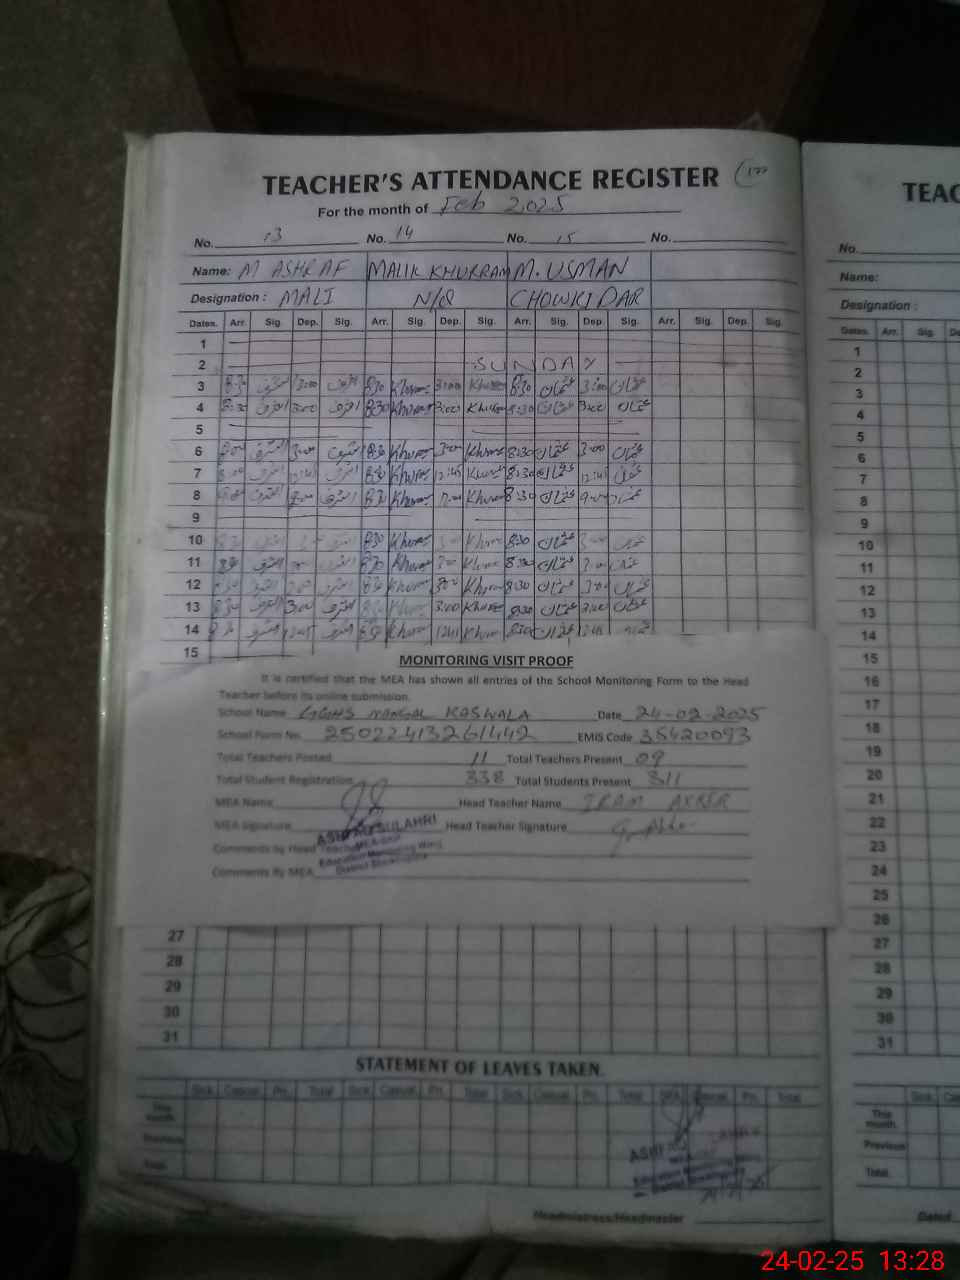 TEACHER'S ATTENDANCE REGISTER
For the month of Feb 2025
No. 13 No. 14 No. 15 No.
Name: M ASHRAF MALIK KHURRAM M. USMAN
Designation : MALI N/Q CHOWKIDAR
Dates. Arr. Sig. Dep. Sig. Arr. Sig. Dep. Sig. Arr. Sig. Dep. Sig. Arr. Sig. Dep. Sig.
1
2 SUNDAY
3 8:30 اشرف 3:00 اشرف 8:30 Khurram 3:00 Khurram 8:30 عثمان 3:00 عثمان
4 8:30 اشرف 3:00 اشرف 8:30 Khurram 3:00 Khurram 8:30 عثمان 3:00 عثمان
5
6 اشرف 3:00 اشرف 8:30 Khurram 3:00 Khurram 8:30 عثمان 3:00 عثمان
7 اشرف 12:45 اشرف 8:30 Khurram 12:45 Khurram 8:30 عثمان 12:45 عثمان
8 اشرف اشرف 8:30 Khurram Khurram 8:30 عثمان عثمان
9
10 8:30 Khurram Khurram 8:30 عثمان 3:00 عثمان
11 8:30 اشرف اشرف 8:30 Khurram 3:00 Khurram 8:30 عثمان 3:00 عثمان
12 8:30 اشرف 3:00 اشرف 8:30 Khurram 3:00 Khurram 8:30 عثمان 3:00 عثمان
13 8:30 اشرف 3:00 اشرف 8:30 Khurram 3:00 Khurram 8:30 عثمان 3:00 عثمان
14 8:30 اشرف 12:45 اشرف 8:30 Khurram 12:45 Khurram 8:30 عثمان 12:45 عثمان
15
MONITORING VISIT PROOF
It is certified that the MEA has shown all entries of the School Monitoring Form to the Head
Teacher before its online submission.
School Name GGHS NANGAL KASWALA Date 24-02-2025
School Form No. 25022413261442 EMIS Code 35420093
Total Teachers Posted 11 Total Teachers Present 09
Total Student Registration 338 Total Students Present 311
MEA Name Head Teacher Name IRAM AKBER
MEA Signature Head Teacher Signature
Comments by Head Teacher
Education Monitoring Wing
Comments By MEA
27
28
29
30
31
STATEMENT OF LEAVES TAKEN.
Sick. Casual. Pri. Total Sick. Casual. Pri. Total Sick. Casual. Pri. Total Sick. Casual. Pri. Total
This month.
Previous
Total
Education Monitoring Wing
Headmistress/Headmaster
TEAC
No.
Name:
Designation :
Dates. Arr. Sig. Dep.
1
2
3
4
5
6
7
8
9
10
11
12
13
14
15
16
17
18
19
20
21
22
23
24
25
26
27
28
29
30
31
Sick. Ca
This month.
Previous
Total.
Dated
24-02-25 13:28